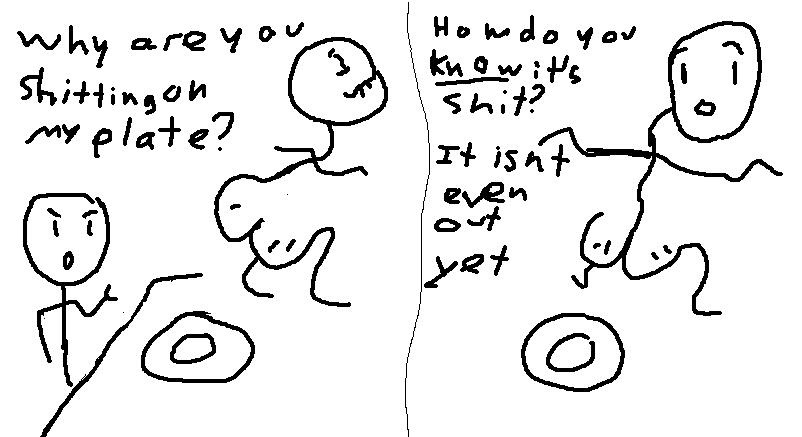 why are you
shitting on
my plate?
How do you
know it's
shit?
It isnt
even
out
yet